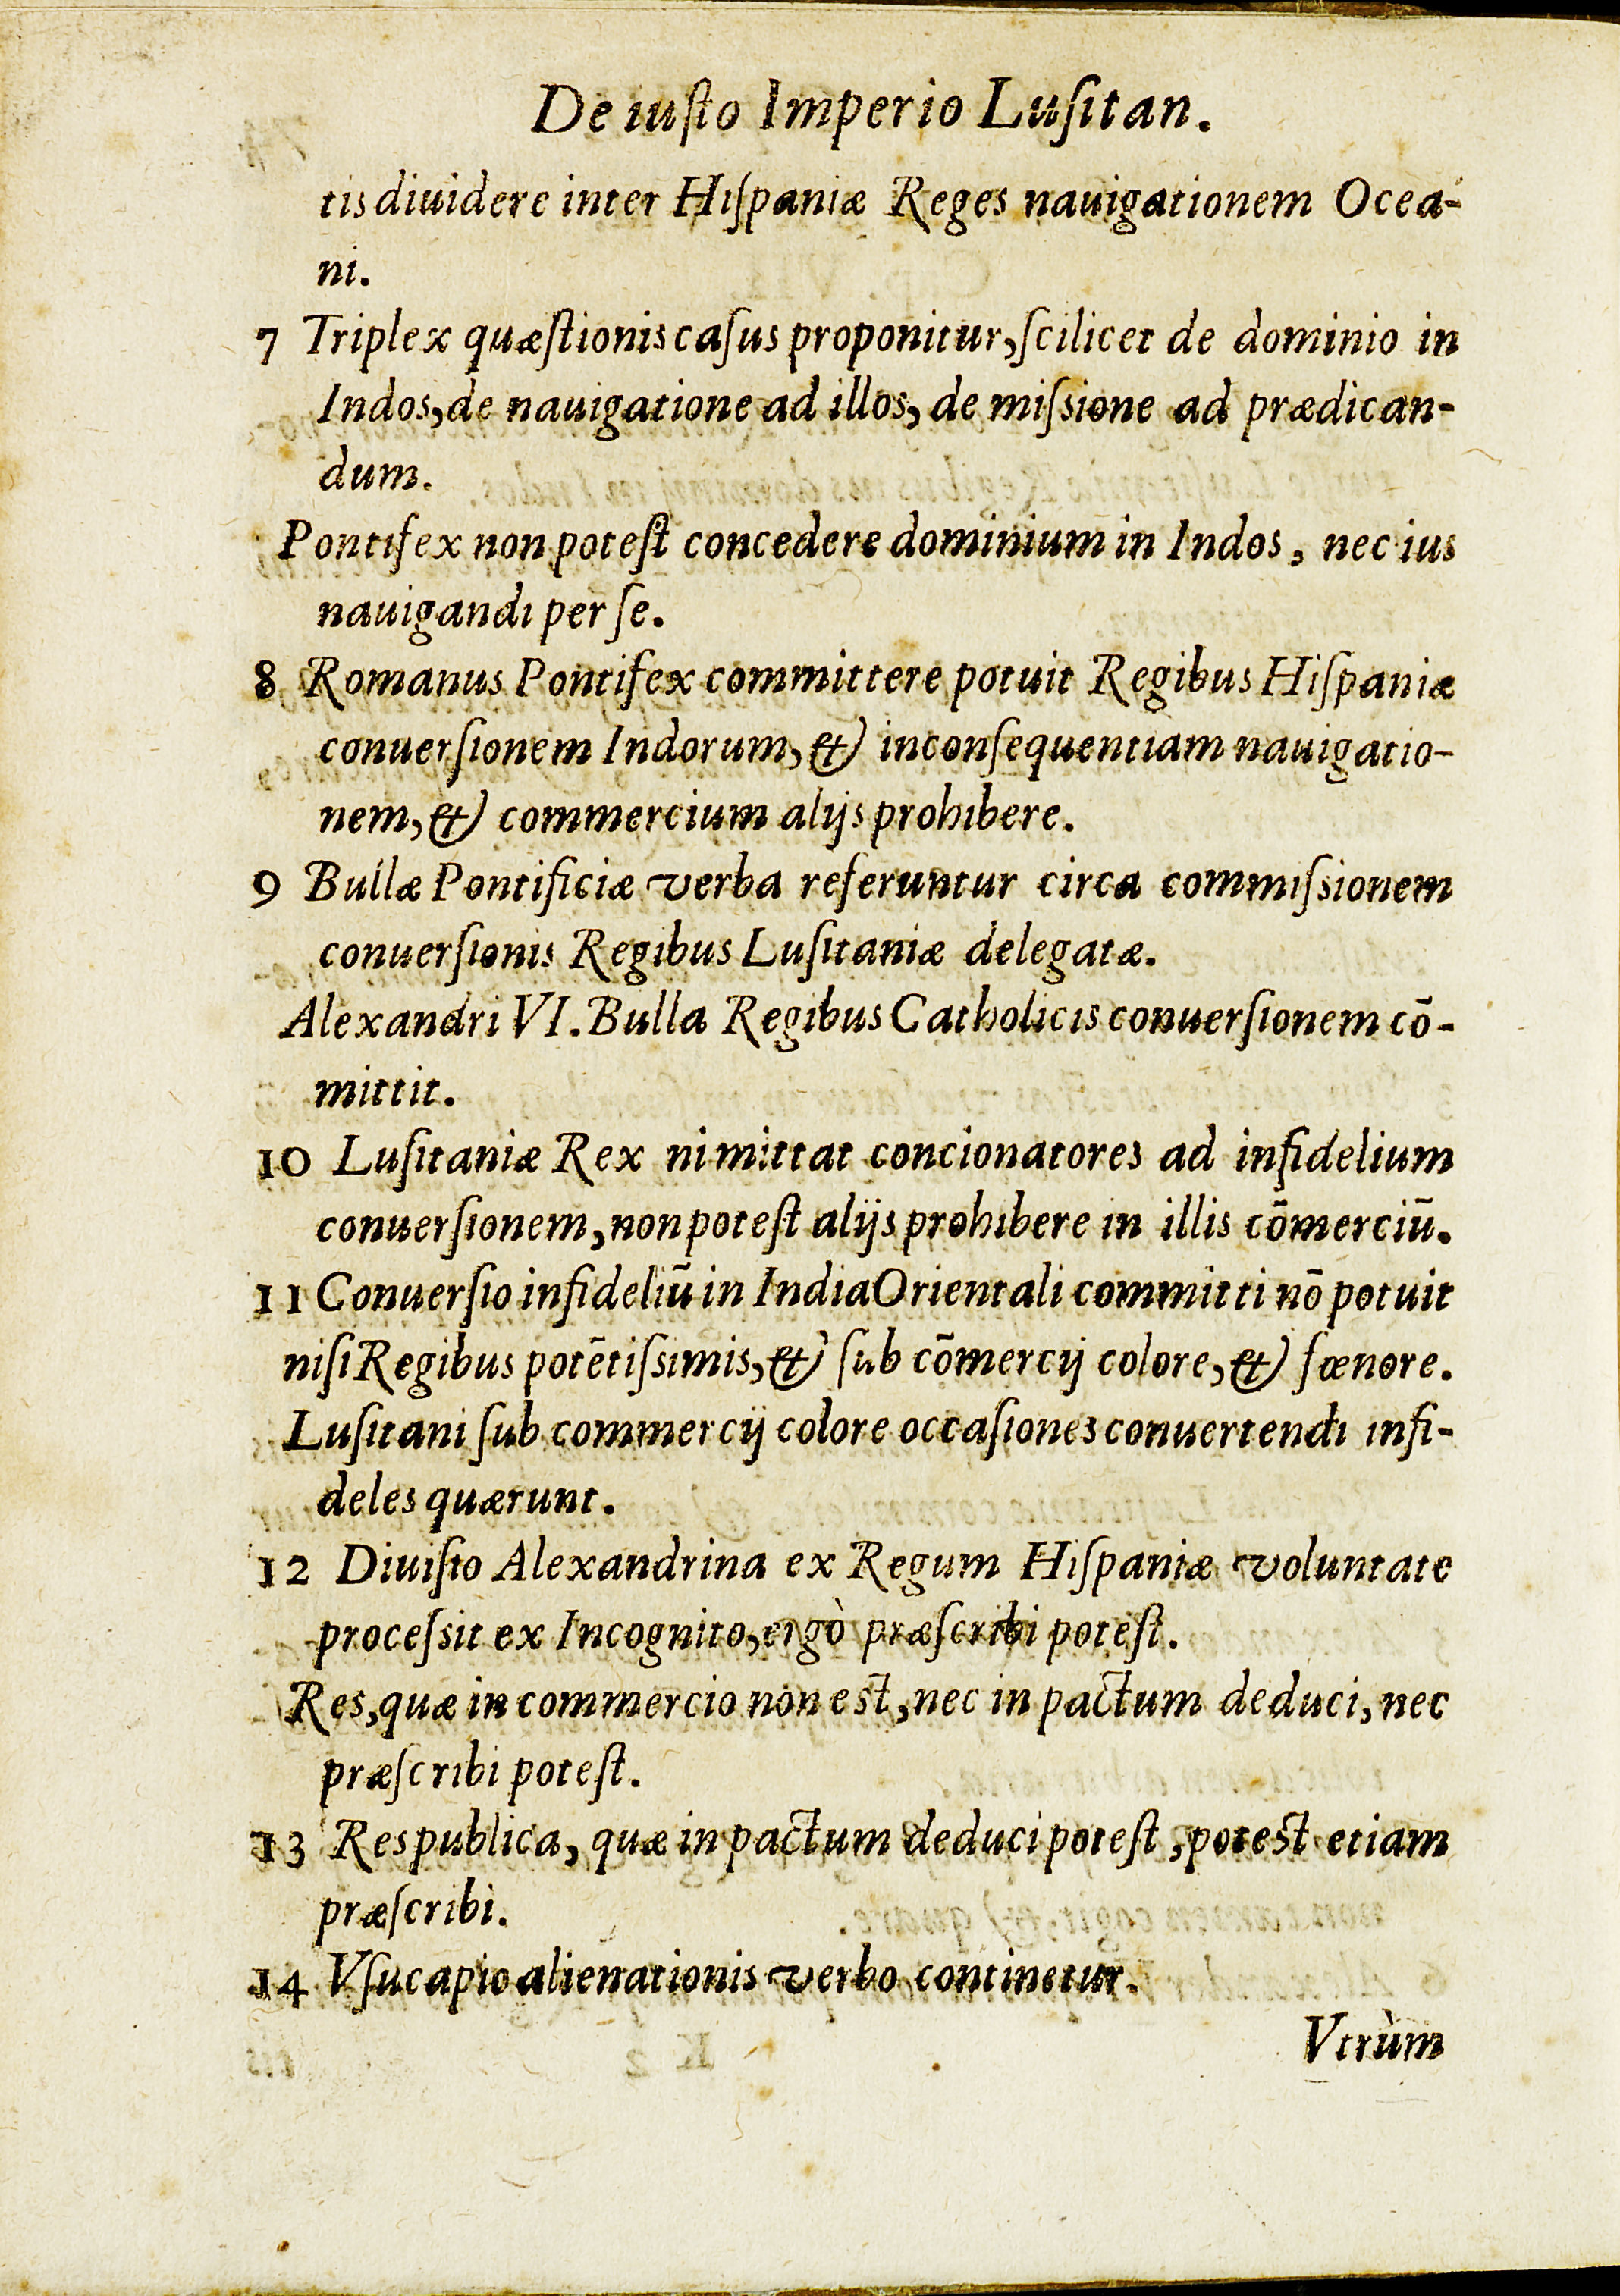 De iuſto Imperio Luſitan.
tis diuidere inter Hiſpaniæ Reges nauigationem Ocea-
ni.
7 Triplex quæſtionis caſus proponitur, ſcilicet de dominio in
Indos, de nauigatione ad illos, de miſsione ad prædican-
dum.
Pontifex non poteſt concedere dominium in Indos, nec ius
nauigandi per ſe.
8 Romanus Pontifex committere potuit Regibus Hiſpaniæ
conuerſionem Indorum, & inconſequentiam nauigatio-
nem, & commercium alijs prohibere.
9 Bullæ Pontificiæ verba referuntur circa commiſsionem
conuerſionis Regibus Luſitaniæ delegatæ.
Alexandri VI. Bulla Regibus Catholicis conuerſionem cō-
mittit.
10 Luſitaniæ Rex ni mittat concionatores ad infidelium
conuerſionem, non poteſt alijs prohibere in illis cōmerciū.
11 Conuerſio infideliū in India Orientali committi nō potuit
niſi Regibus potētiſsimis, & ſub cōmercij colore, & fœnore.
Luſitani ſub commercij colore occaſiones conuertendi infi-
deles quærunt.
12 Diuiſio Alexandrina ex Regum Hiſpaniæ voluntate
proceſsit ex Incognito, ergò præſcribi poteſt.
Res, quæ in commercio non eſt, nec in pactum deduci, nec
præſcribi poteſt.
13 Res publica, quæ in pactum deduci poteſt, poteſt etiam
præſcribi.
14 Vſucapio alienationis verbo continetur.
Vtrùm